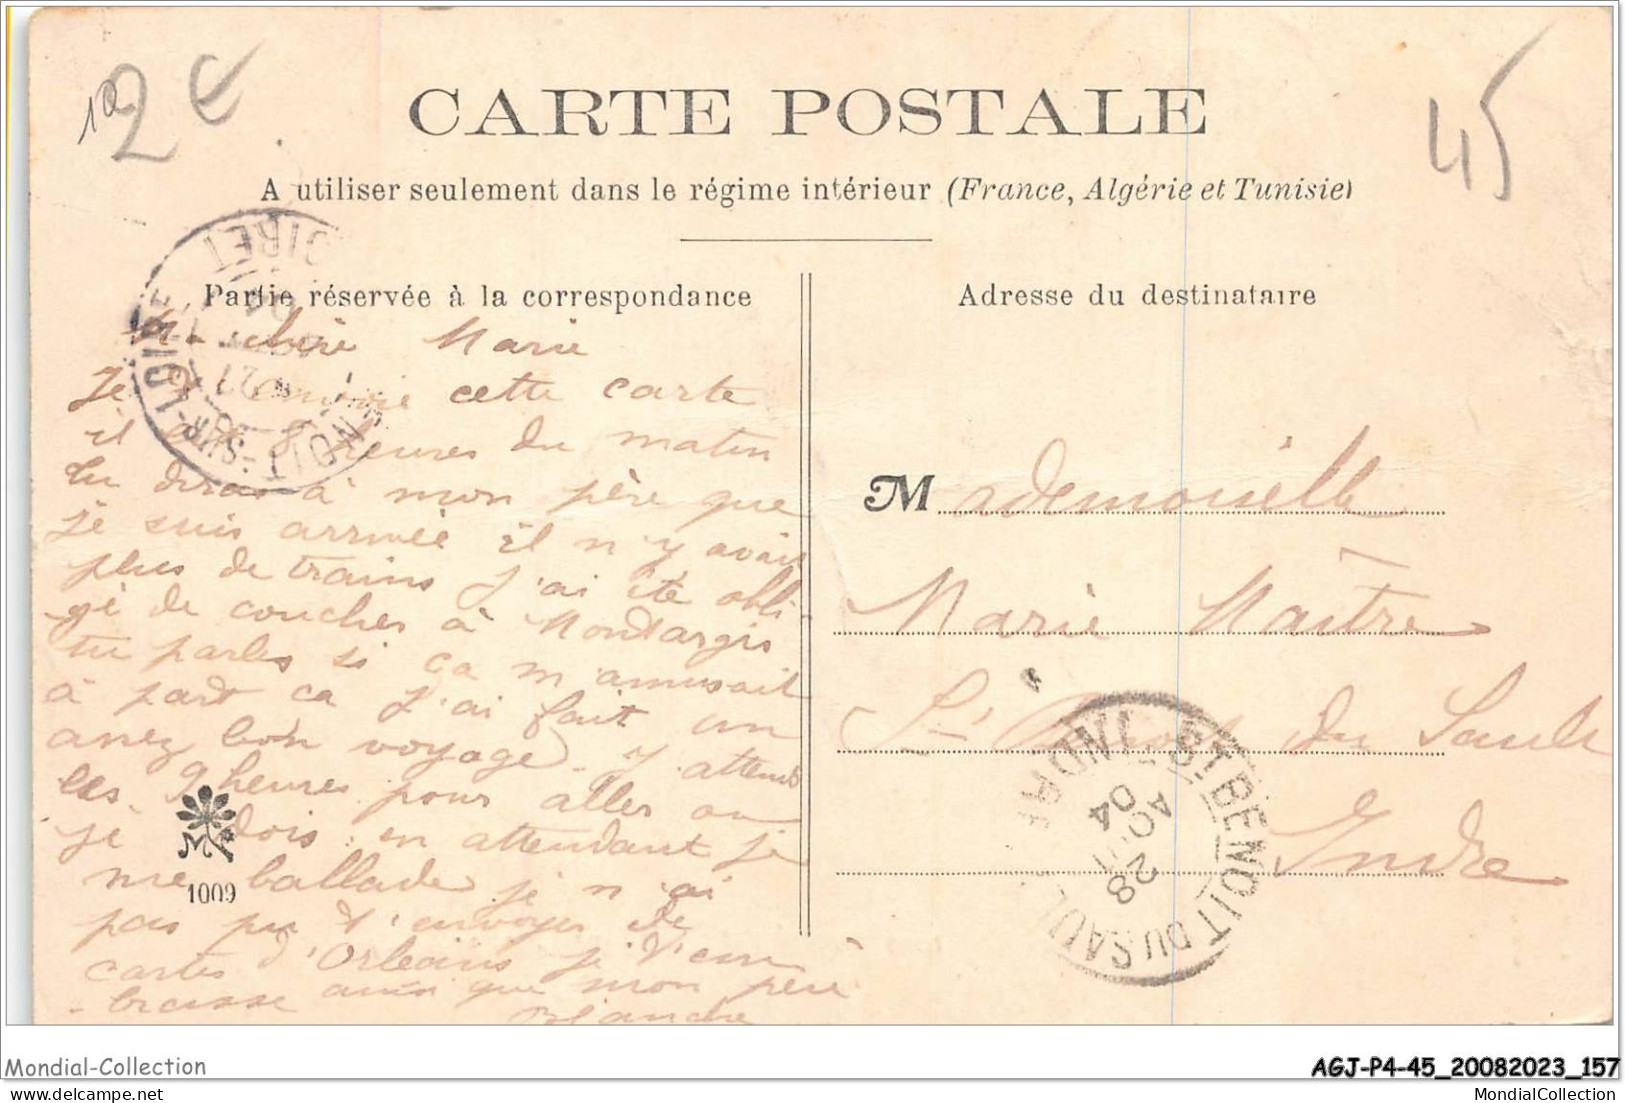 102 €
45
CARTE POSTALE
A utiliser seulement dans le régime intérieur (France, Algérie et Tunisie)
Partie réservée à la correspondance
Adresse du destinataire
Ma chère Marie
Je t'envoie cette carte
il est 8 heures du matin
tu diras à mon père que
je suis arrivée il n'y avait
plus de trains j'ai été obli-
gé de coucher à Montargis
tu parles si ça m'amusait
à part ca j'ai fait un
assez bon voyage j'attends
les 9 heures pour aller ou
je dois en attendant je
me ballade je n'ai
pas pu t'envoyer de
cartes d'Orléans je t'em
-brasse ainsi que mon père
Blanche
Mademoiselle
Marie Maître
St Benoit du Sault
Indre
NOIT-SUR-LOIRE
LOIRET
27
04
ST BENOIT DU SAULT
INDRE
28
AOUT
04
M
1009
Mondial-Collection
AGJ-P4-45_20082023_157
MondialCollection